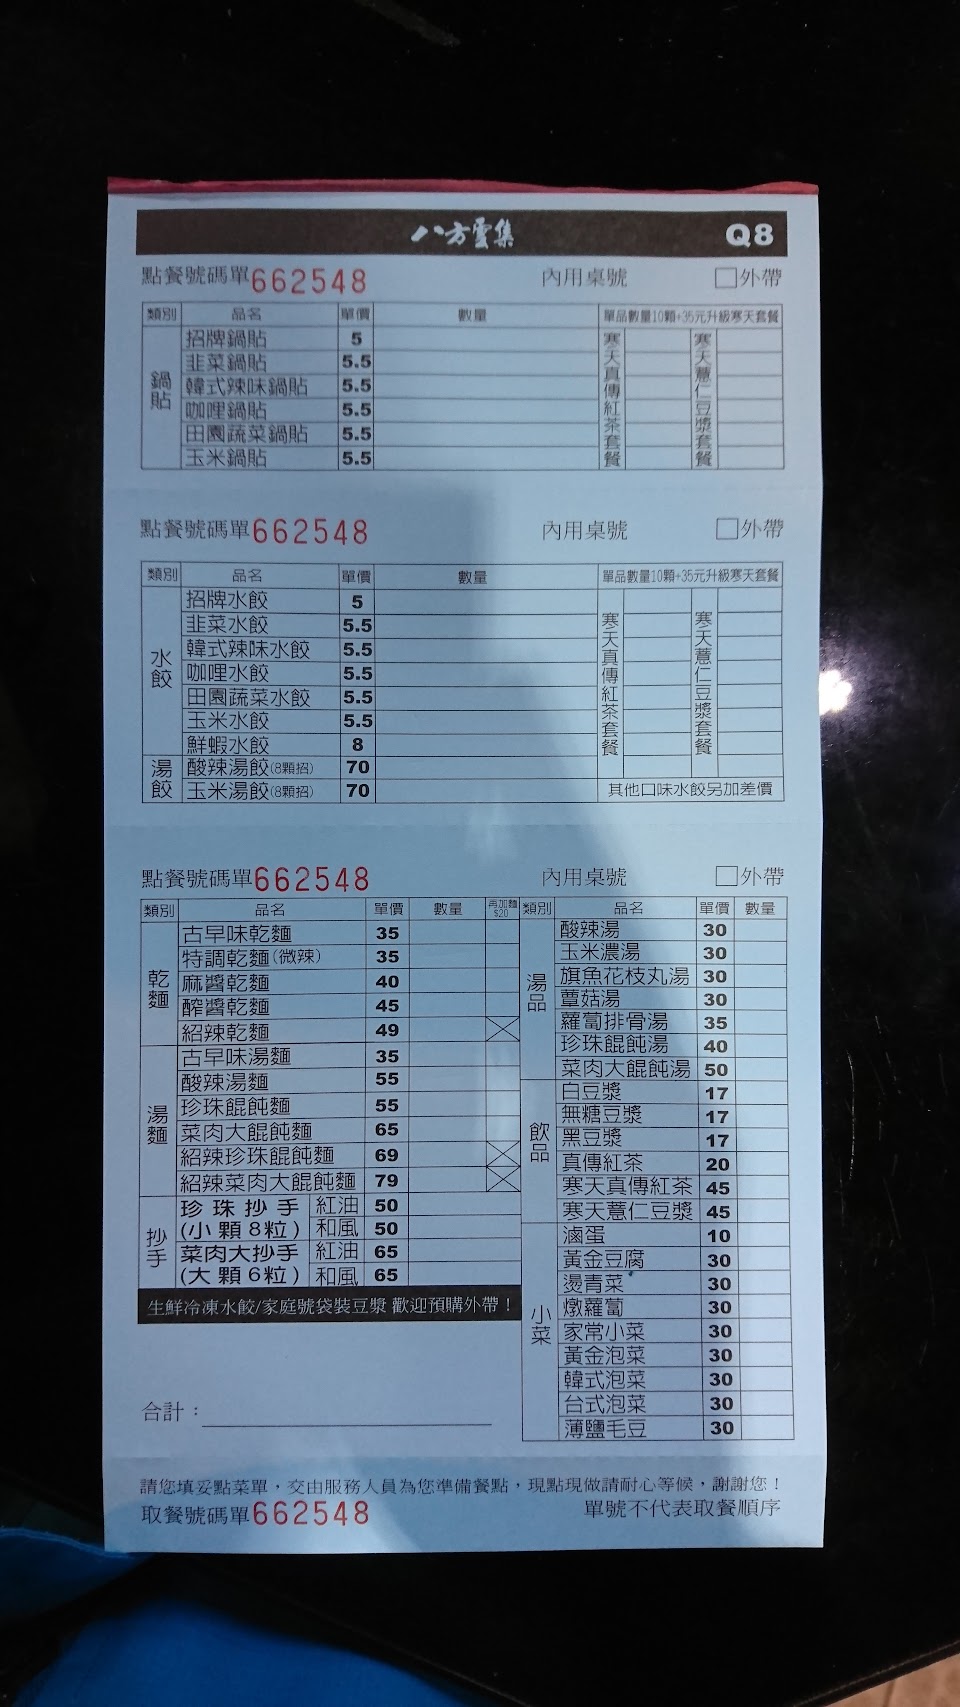 八方雲集 Q8
點餐號碼單662548 內用桌號 □外帶
類別 品名 單價 數量 單品數量10顆+35元升級寒天套餐
鍋貼
招牌鍋貼 5
韭菜鍋貼 5.5
韓式辣味鍋貼 5.5
咖哩鍋貼 5.5
田園蔬菜鍋貼 5.5
玉米鍋貼 5.5
寒天真傳紅茶套餐
寒天薏仁豆漿套餐
點餐號碼單662548 內用桌號 □外帶
類別 品名 單價 數量 單品數量10顆+35元升級寒天套餐
水餃
招牌水餃 5
韭菜水餃 5.5
韓式辣味水餃 5.5
咖哩水餃 5.5
田園蔬菜水餃 5.5
玉米水餃 5.5
鮮蝦水餃 8
寒天真傳紅茶套餐
寒天薏仁豆漿套餐
湯餃
酸辣湯餃(8顆招) 70
玉米湯餃(8顆招) 70 其他口味水餃另加差價
點餐號碼單662548 內用桌號 □外帶
類別 品名 單價 數量 再加麵$20
乾麵
古早味乾麵 35
特調乾麵(微辣) 35
麻醬乾麵 40
醡醬乾麵 45
紹辣乾麵 49
湯麵
古早味湯麵 35
酸辣湯麵 55
珍珠餛飩麵 55
菜肉大餛飩麵 65
紹辣珍珠餛飩麵 69
紹辣菜肉大餛飩麵 79
抄手
珍珠抄手(小顆8粒) 紅油 50
和風 50
菜肉大抄手(大顆6粒) 紅油 65
和風 65
生鮮冷凍水餃/家庭號袋裝豆漿 歡迎預購外帶！
合計：
類別 品名 單價 數量
湯品
酸辣湯 30
玉米濃湯 30
旗魚花枝丸湯 30
蕈菇湯 30
蘿蔔排骨湯 35
珍珠餛飩湯 40
菜肉大餛飩湯 50
飲品
白豆漿 17
無糖豆漿 17
黑豆漿 17
真傳紅茶 20
寒天真傳紅茶 45
寒天薏仁豆漿 45
小菜
滷蛋 10
黃金豆腐 30
燙青菜 30
燉蘿蔔 30
家常小菜 30
黃金泡菜 30
韓式泡菜 30
台式泡菜 30
薄鹽毛豆 30
請您填妥點菜單，交由服務人員為您準備餐點，現點現做請耐心等候，謝謝您！
取餐號碼單662548 單號不代表取餐順序